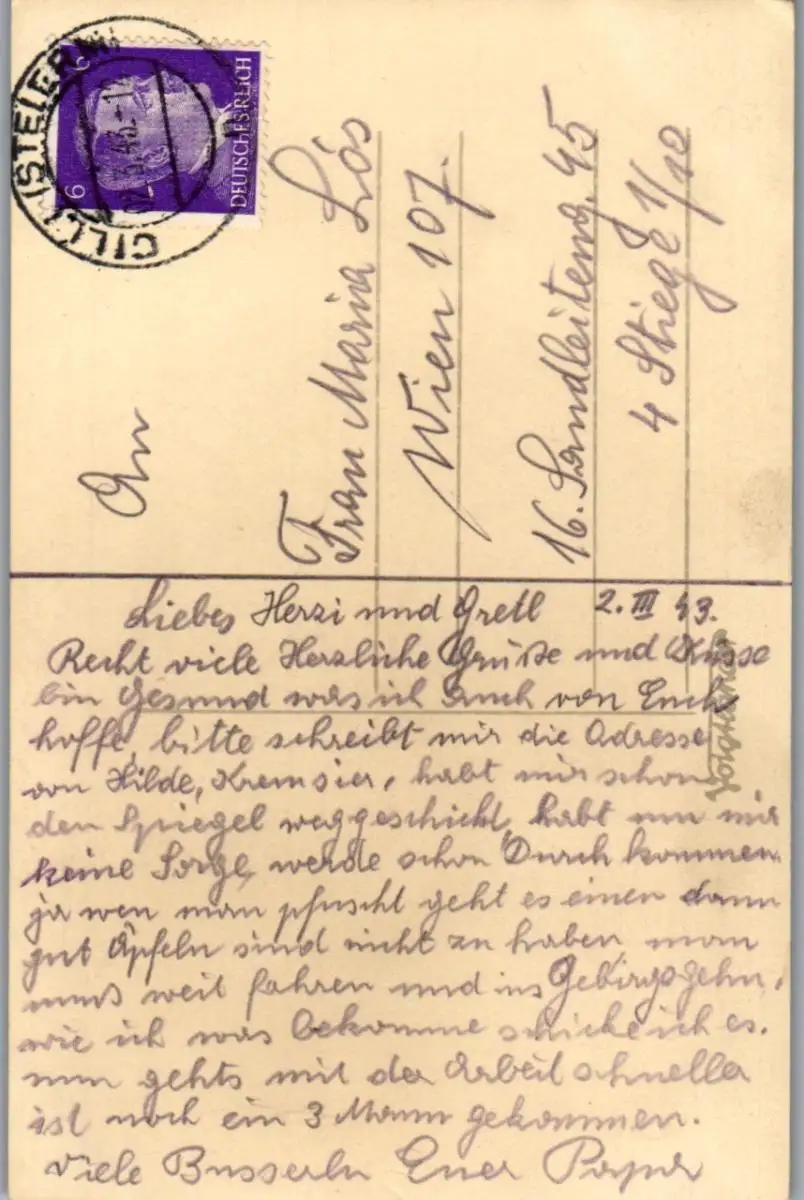 CILLI (STEIERM)
02.3.43.-1
6
6
DEUTSCHES REICH
An
Frau Maria Lös
Wien 107.
16. Sandleiteng. 45
4 Stiege 1/12
Liebes Herzi und Gretl 2. III 43.
Recht viele Herzliche Grüße und Küsse
bin Gesund was ich auch von Euch
hoffe, bitte schreibt mir die Adresse
von Hilde, Kremsier, habt mir schon
den Spiegel weggeschickt, habt um mir
keine Sorge, werde schon Durch kommen.
ja wen man pfuscht geht es einen dann
gut Äpfeln sind nicht zu haben, man
muß weit fahren und ins Gebirgs gehn,
wie ich was bekomme schicke ich es.
nun gehts mit der Arbeit schneller
ist noch ein 3 Mann gekommen.
Viele Busserln Euer Papa
Voigtländer